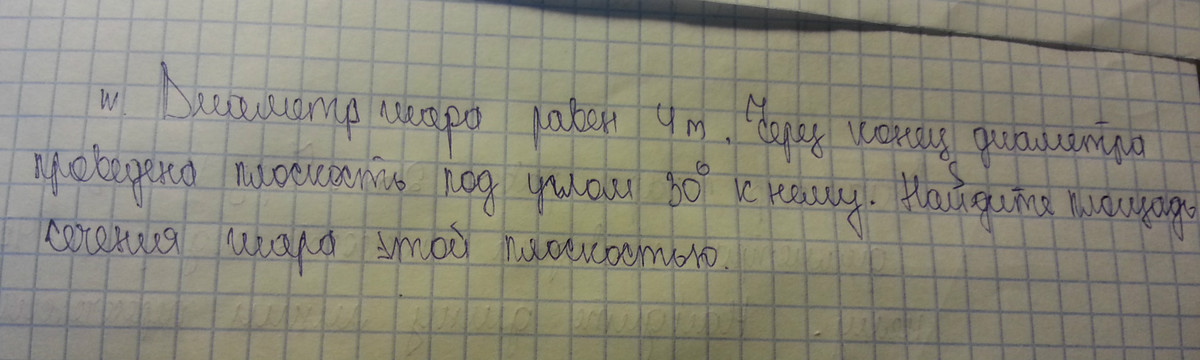 №. Диаметр шара равен 4m. Через конец диаметра
проведена плоскость под углом 30° к нему. Найдите площадь
сечения шара этой плоскостью.